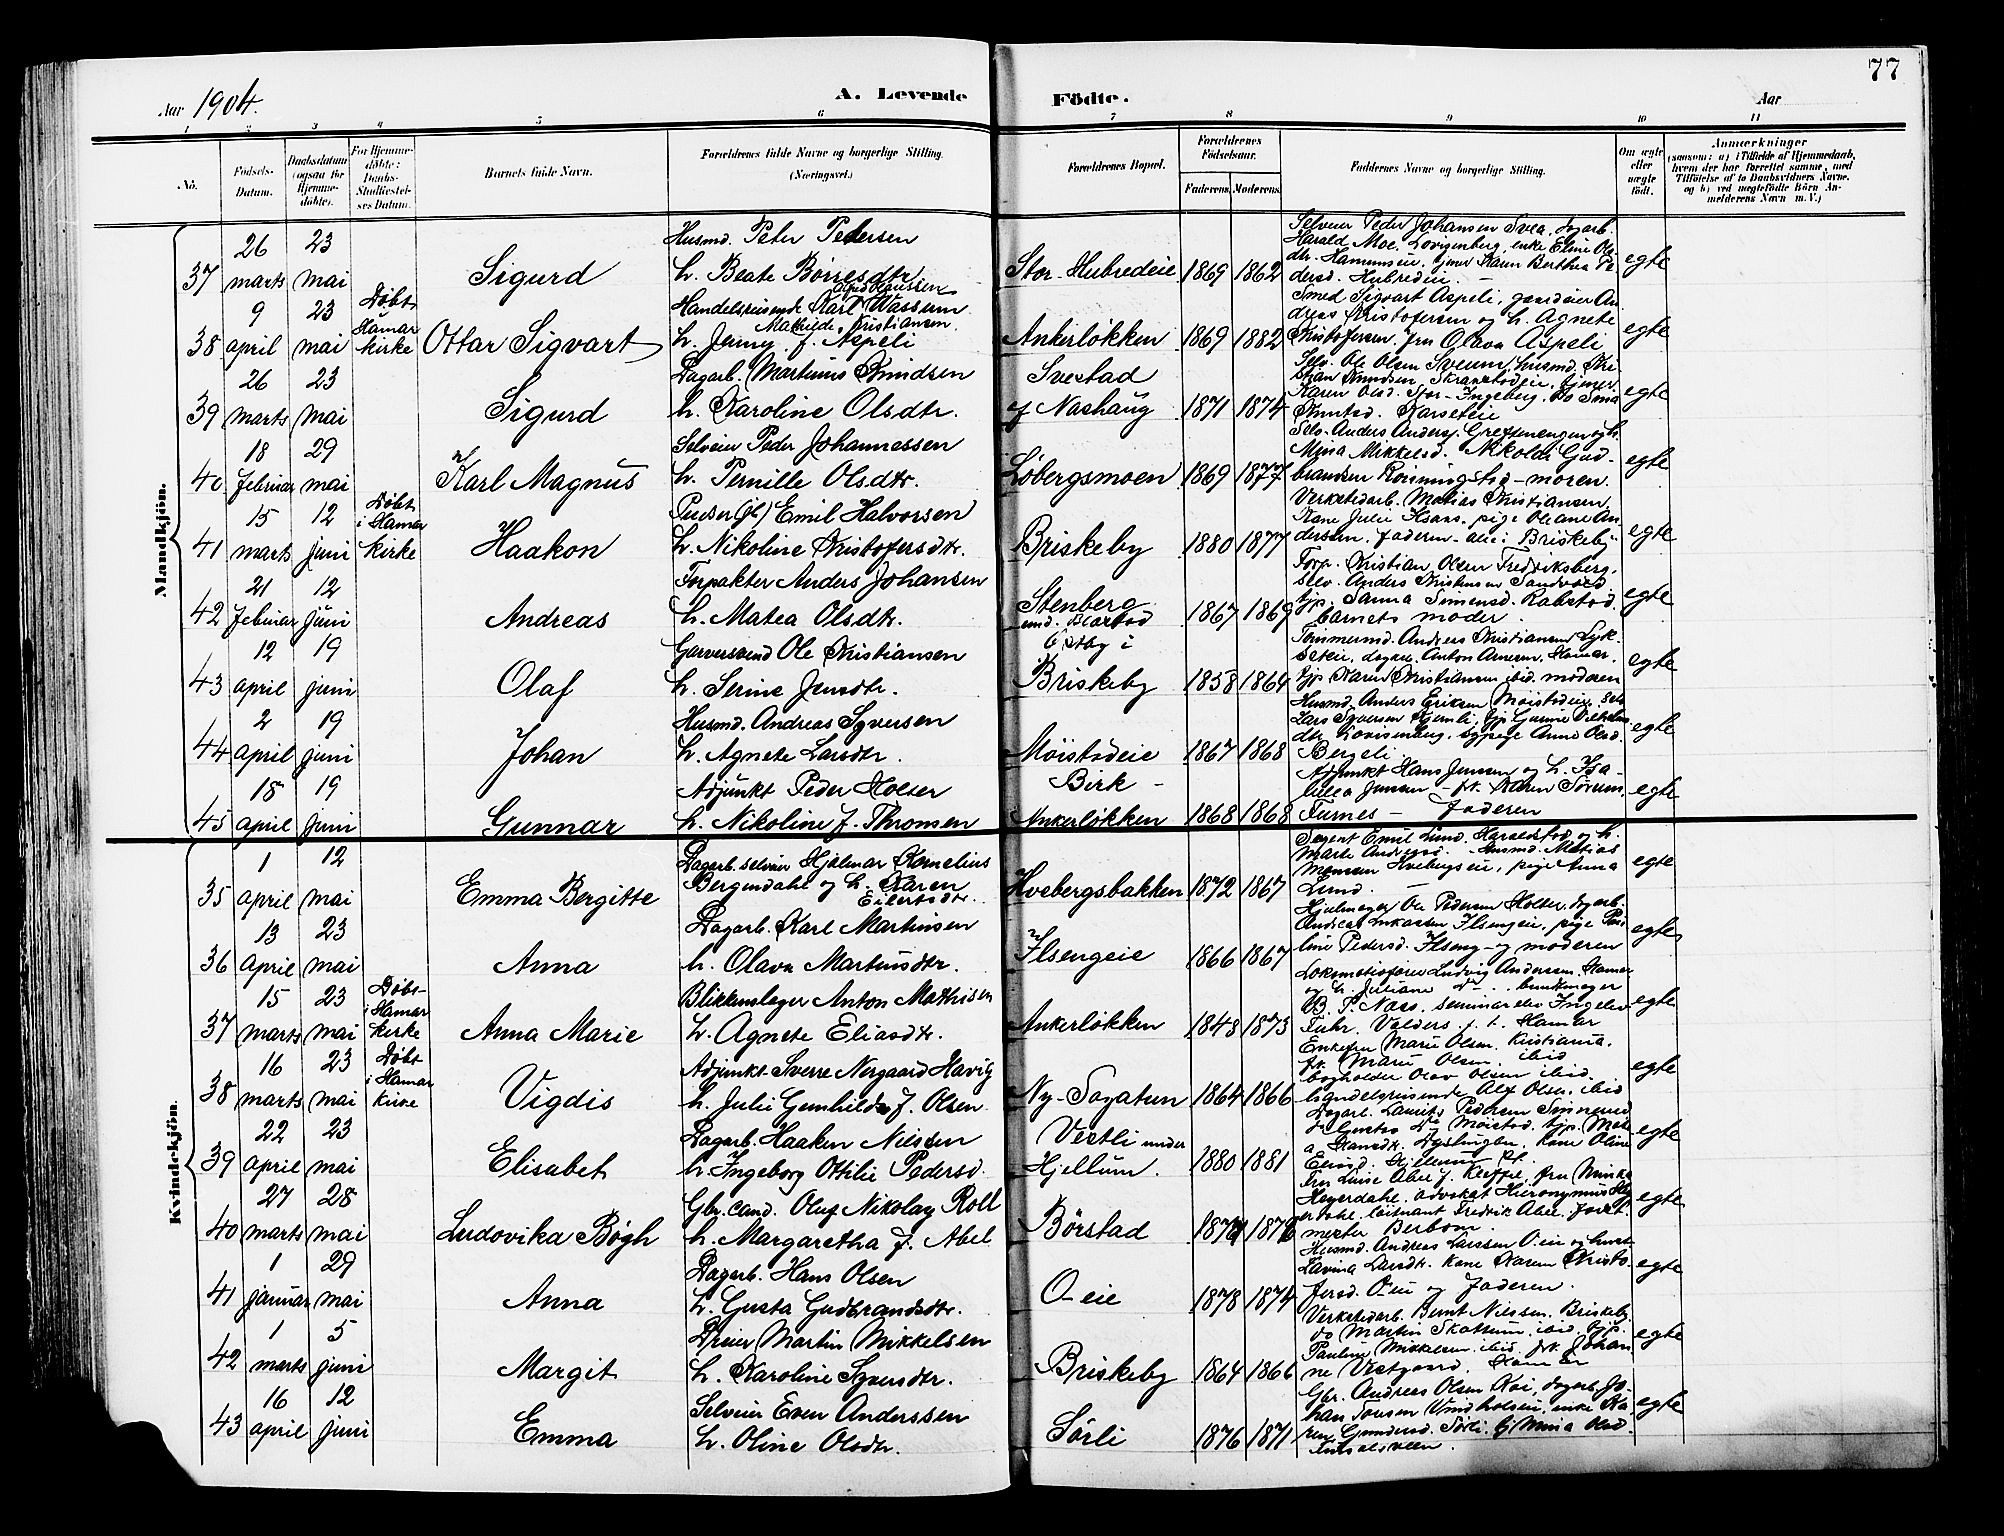 77
Aar 1904.
A. Levende Födte.
Aar
1 2 3 4 5 6 7 8 9 10 11
No.
Födsels-Datum.
Daabsdatum (ogsaa for Hjemme-döbte).
For Hjemme-döbte: Daabs-Stadfæstel-ses Datum.
Barnets fulde Navn.
Forældrenes fulde Navne og borgerlige Stilling. (Næringsvei.)
Forældrenes Bopæl.
Forældrenes Födselsaar.
Faderens. Moderens.
Faddernes Navne og borgerlige Stilling.
Om ægte eller uægte födt.
Anmærkninger
(saasom: a) i Tilfælde af Hjemmedaab, hvem der har forrettet samme, med Tilföielse af to Daabsvidners Navne, og b) ved uægtefödte Börn An-melderens Navn m. V.)
Mandkjön.
37 26 marts 23 mai Sigurd
Husmd. Peter Pedersen
h. Beate Børresdtr.
Stor-Hubredeie 1869 1862
Selveier Peder Johansen Svea, dagarb.
Harald Moe, Lovisenberg, enke Eline Ols
dtr. Hammeseie, tjener Karen Berthea Pe
dersd. Hubredeie. egte
38 9 april 23 mai Døbt i Hamar kirke Ottar Sigvart
Handelsreisende Karl Wassum
h. Jenny Mathilde Kristiansen f. Aspeli
Ankerløkken 1869 1882
Smed Sigvart Aspeli, gaardeier An
dreas Kristofersen og h. Agnete
Kristofersen, frn Olava Aspeli egte
39 26 marts 23 mai Sigurd
Dagarb. Martinus Knudsen
h. Karoline Olsdtr.
Svestad af Nashaug 1871 1874
Selv. Ole Olsen Sveum, husmd. Kri
stian Knudsen, Skrarstadeie, tjener
Karen Olsd. Stor-Ingeberg, do Sina
Knutsd. Karseteie egte
40 18 februar 29 mai Karl Magnus
Selveier Peder Johannessen
h. Pernille Olsdtr.
Løbergsmoen 1869 1877
Selv. Anders Anders. Greftenengen og h.
Mina Mikkelsd. Nikolai Gud-
brandsen Rønningstad - moren. egte
41 15 marts 12 juni Døbt i Hamar kirke Haakon
Pudser (jb) Emil Halvorsen
h. Nikoline Kristofersdtr.
Briskeby 1880 1877
Verkstedarb. Matias Kristiansen,
Kone Julie Isars. pige Oleane An
dersen. faderen - alle i Briskeby- egte
42 21 februar 12 juni Andreas
Forpakter Anders Johansen
h. Matea Olsdtr.
Stenberg und. 1867 1869
Forp. Kristian Olsen Fredriksberg,
Selv. Anders Kristensen Sandvold
tjp. Sanna Simensd. Rabstad.
barnets moder. egte
43 12 april 19 juni Olaf
Garversvend Ole Kristiansen
h. Serine Jensdtr.
Briskeby 1858 1864
Tømmermd. Andreas Kristiansen Lyk-
seteie. dagar. Anton Arnesen, Hamar.
tjp Karen Kristiansen ibid. moderen egte
44 2 april 19 juni Johan
Husmd. Andreas Syversen
h. Agnete Larsdtr.
Møistadeie 1867 1868
Husmd. Anders Eriksen Møistadeie, Selv
Lars Syversen Hjemli, tjp Gunne Vilhelms
dtr. Lovisenberg, sypige Anne Olsd.
Bergeli egte
45 18 april 19 juni Gunnar
Adjunkt Peder Holser
h. Nikoline f. Thronsen
Birk - Ankerløkken 1868 1868
Adjunkt Hans Jensen og h. Isa-
bella Jensen - fr. Karen Sørum,
Furnes - faderen egte
Kvindekjön.
35 1 april 12 mai Emma Bergitte
Dagarb. selveier Hjalmar Kornelius
Bergendahl og h. Karen
Eilertsdtr.
Hvebergsbakken 1872 1867
Sergent Emil Lund. Haraldstad og h.
Marte Andersd. - Husmd. Matias
Monsen Hvebergseie, pige Anna
Lund. egte
36 13 april 23 mai Anna
Dagarb. Karl Martinsen
h. Olava Martinusdtr.
Ilsengeie 1866 1867
Hjulmager Ole Pedersen Holter, dagarb.
Andreas Lukassen Ilsengeie, pige Pau
line Pedersd. Ilseng - og moderen egte
37 15 marts 23 mai Døbt i Hamar kirke Anna Marie
Blikkenslager Anton Mathisen
h. Agnete Eliasdtr.
Ankerløkken 1848 1873
Lokomotivfører Ludvig Andersen, Hamar
og h. Juliane do. buntmager
B. P. Nass, seminarelev Ingeleiv
Fuhr, Valders p. t. Hamar egte
38 16 marts 23 mai Døbt i Hamar kirke Vigdis
Adjunkt Sverre Nergaard Havig
h. Julie Gunhilda f. Olsen
Ny-Sagatun 1864 1866
Enkefru Marie Olsen. Kristiania,
fr. Marie Olsen ibid
bogholder Olav Olsen ibid.
handelsreisende Alf Olsen, ibid egte
39 22 april 23 mai Elisabet
Dagarb. Haaken Nilssen
h. Ingeborg Ottilie Pedersd.
Vestli under Hjellum. 1880 1881
Dagarb. Laurits Pedersen
do Gustav do Møistad. tjp.
Hansdtr. Dyslingby, Kone Oline
Hjellum egte
40 27 marts 28 mai Ludovika Bøgh
Gbr. cand. Oluf Nikolay Roll
h. Margaretha f. Abel
Børstad
Fru Luise Abel f. Kleffel, fru Minka
Heyerdahl. advokat Hieronymus Hey
erdahl. løitnant Fredrik Abel, forst
mester Berbom. egte
41 1 januar 29 mai Anna
Dagarb. Hans Olsen
h. Gusta Gudbrandsdtr.
O-eie 1878 1874
Husmd. Andreas Larssen O-eie og hust.
Lavina Larsdtr. Kone Karen Kristo
fersd. O-eie og faderen. egte
42 1 marts 5 juni Margit
Dreier Martin Mikkelsen
h. Karoline Syversdtr.
Briskeby 1864 1866
Verkstedarb. Bernt Nilssen. Briskeby
do Martin Skattum, ibid, tjp.
Pauline Mikkelsen ibid. frk Johan
ne Vestgaard. Hamar egte
43 16 april 12 juni Emma
Selveier Even Anderssen
h. Oline Olsdtr.
Sørli 1876 1871
Gbr. Andreas Olsen Koi, dagarb. Jo-
han Tonsen Vindholseie, enke Ka-
ren Gundersd. Sørli. tj Mina Olsd. egte